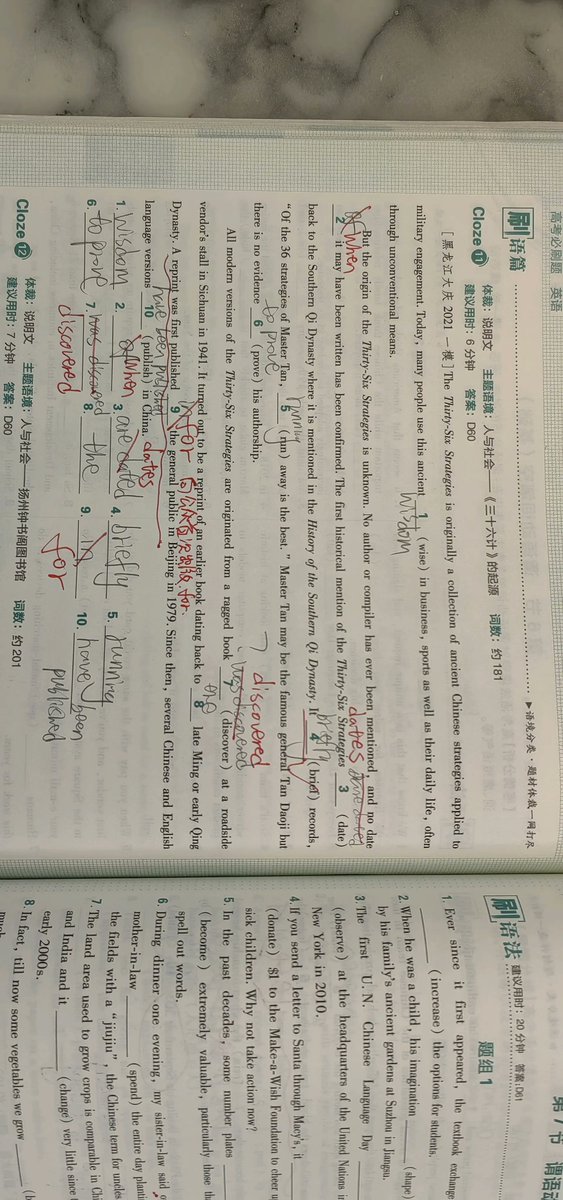 高考必刷题 英语
刷语篇 ▶语境分类·题材体裁一网打尽
Cloze 11 体裁：说明文 主题语境：人与社会——《三十六计》的起源 词数：约181
建议用时：6分钟 答案：D60
[黑龙江大庆2021一模] The Thirty-Six Strategies is originally a collection of ancient Chinese strategies applied to
military engagement. Today, many people use this ancient 1 (wise) in business, sports as well as their daily life, often
wisdom
through unconventional means.
But the origin of the Thirty-Six Strategies is unknown. No author or compiler has ever been mentioned, and no date
of when
dates
are dated
2 it may have been written has been confirmed. The first historical mention of the Thirty-Six Strategies 3 (date)
back to the Southern Qi Dynasty where it is mentioned in the History of the Southern Qi Dynasty. It 4 (brief) records,
briefly
running
"Of the 36 strategies of Master Tan, 5 (run) away is the best." Master Tan may be the famous general Tan Daoji but
to prove
there is no evidence 6 (prove) his authorship.
discovered
was discovered
All modern versions of the Thirty-Six Strategies are originated from a ragged book 7 (discover) at a roadside
vendor's stall in Sichuan in 1941. It turned out to be a reprint of an earlier book dating back to 8 late Ming or early Qing
the
in for
Dynasty. A reprint was first published 9 the general public in Beijing in 1979. Since then, several Chinese and English
have been published
language versions 10 (publish) in China.
1. wisdom 2. of when 3. are dated 4. briefly 5. running
dates
6. to prove 7. was discovered 8. the 9. in 10. have been published
discovered
for
Cloze 12 体裁：说明文 主题语境：人与社会——扬州钟书阁图书馆 词数：约201
建议用时：7分钟 答案：D60
刷语法 建议用时：20分钟 答案：D61
题组1
1. Ever since it first appeared, the textbook exchange
(increase) the options for students.
2. When he was a child, his imagination (shape)
by his family's ancient gardens at Suzhou in Jiangsu.
3. The first U.N. Chinese Language Day
(observe) at the headquarters of the United Nations in
New York in 2010.
4. If you send a letter to Santa through Macy's, it
(donate) $1 to the Make-a-Wish Foundation to cheer up
sick children. Why not take action now?
5. In the past decades, some number plates
(become) extremely valuable, particularly those
spell out words.
6. During dinner one evening, my sister-in-law said
mother-in-law (spend) the entire day
the fields with a "jiujiu", the Chinese term for
7. The land area used to grow crops is comparable in
and India and it (change) very little since
early 2000s.
8. In fact, till now some vegetables we grow